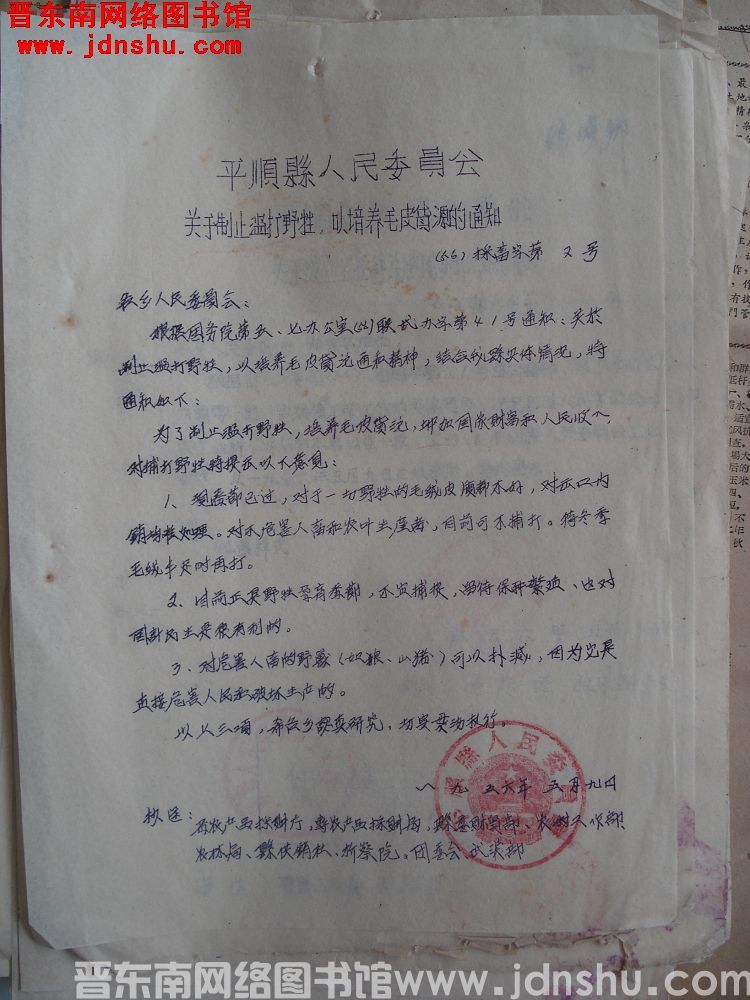 晋东南网络图书馆
www.jdnshu.com
平順縣人民委員会
关于制止滥打野牲，以培养毛皮貨源的通知
(56)採畜字第 2 号
各乡人民委員会：
根据国务院第五、七办公室(56)联武办字第41号通知：关於
制止滥打野牲，以培养毛皮貨沅通知精神，结合我縣具体情况，特
通知如下：
为了制止滥打野牲，培养毛皮貨沅，增加国家财富和人民收入，
对捕打野牲特提示以下意見：
1、现季節已过，对于一切野牲的毛绒皮质都不好，对出口内
銷均很处理。对不危害人畜和农叶生產者，目前可不捕打。待冬季
毛绒丰足时再打。
2、目前正是野牲孕育季節，不宜捕捉，留待保种繁殖、也对
国計民生是很有利的。
3、对危害人畜的野獸(如狼、山猪)可以扑滅，因为它是
直接危害人民和破坏生产的。
以上三項，希各乡認真研究，切实貫彻执行。
一九五六年五月九日
抄送：省农产品採购厅，专农产品採购局，縣委财貿部、农村工作部
农林局、縣供銷社、檢察院、团委会 武装部
縣人民委
晋东南网络图书馆www.jdnshu.com